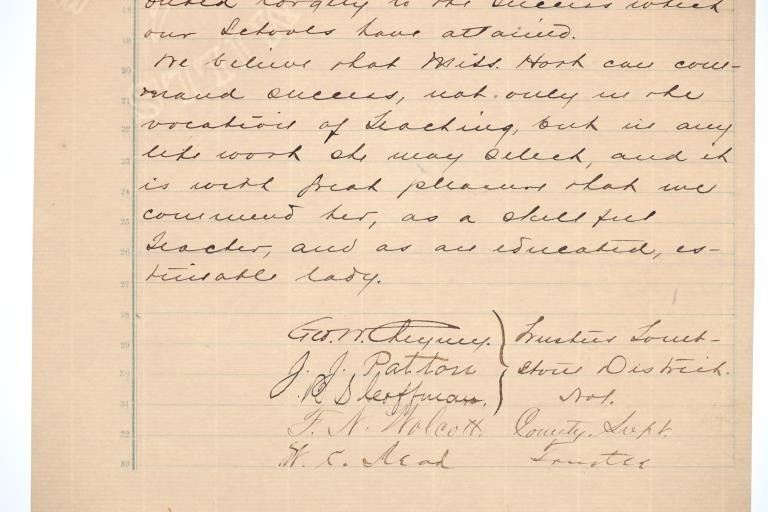 buted largely to the success which
our Schools have attained.
We believe that Miss. Hart can com-
mand success, not only in the
vocation of Teaching, but in any
life work she may select, and it
is with great pleasure that we
commend her, as a skillful
Teacher, and as an educated, es-
timable lady.
Geo. W. Cheyney. Trustees Tomb-
J. J. Patton stone District.
No 1.
F. N. Wolcott. County. Supt.
W. C. Read Trustee
18
19
20
21
22
23
24
25
26
27
28
29
30
31
32
33